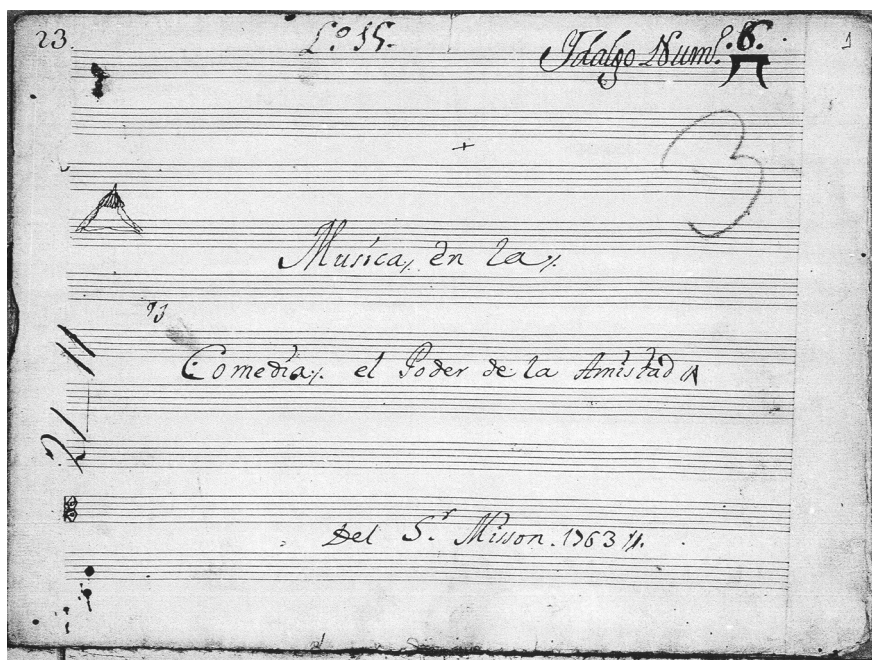 23. L.º 15. Ydalgo Numº. 6. 1
3
Musica, en la
Comedia, el Poder de la Amistad
Del S.r Misson. 1763